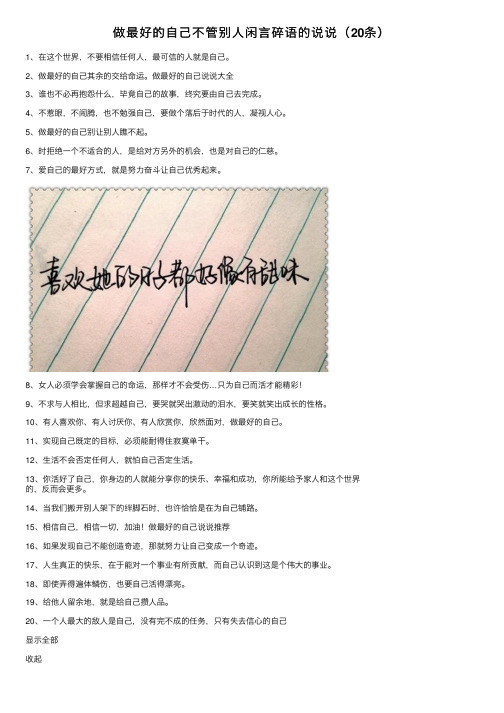 做最好的自己不管别人闲言碎语的说说（20条）
1、在这个世界，不要相信任何人，最可信的人就是自己。
2、做最好的自己其余的交给命运。做最好的自己说说大全
3、谁也不必再抱怨什么，毕竟自己的故事，终究要由自己去完成。
4、不惹眼，不闹腾，也不勉强自己，要做个落后于时代的人，凝视人心。
5、做最好的自己别让别人瞧不起。
6、时拒绝一个不适合的人，是给对方另外的机会，也是对自己的仁慈。
7、爱自己的最好方式，就是努力奋斗让自己优秀起来。
喜欢她的日子都好像有甜味
8、女人必须学会掌握自己的命运，那样才不会受伤…只为自己而活才能精彩！
9、不求与人相比，但求超越自己，要哭就哭出激动的泪水，要笑就笑出成长的性格。
10、有人喜欢你、有人讨厌你、有人欣赏你，欣然面对，做最好的自己。
11、实现自己既定的目标，必须能耐得住寂寞单干。
12、生活不会否定任何人，就怕自己否定生活。
13、你活好了自己，你身边的人就能分享你的快乐、幸福和成功，你所能给予家人和这个世界
的，反而会更多。
14、当我们搬开别人架下的绊脚石时，也许恰恰是在为自己铺路。
15、相信自己，相信一切，加油！做最好的自己说说推荐
16、如果发现自己不能创造奇迹，那就努力让自己变成一个奇迹。
17、人生真正的快乐，在于能对一个事业有所贡献，而自己认识到这是个伟大的事业。
18、即使弄得遍体鳞伤，也要自己活得漂亮。
19、给他人留余地，就是给自己攒人品。
20、一个人最大的敌人是自己，没有完不成的任务，只有失去信心的自己
显示全部
收起